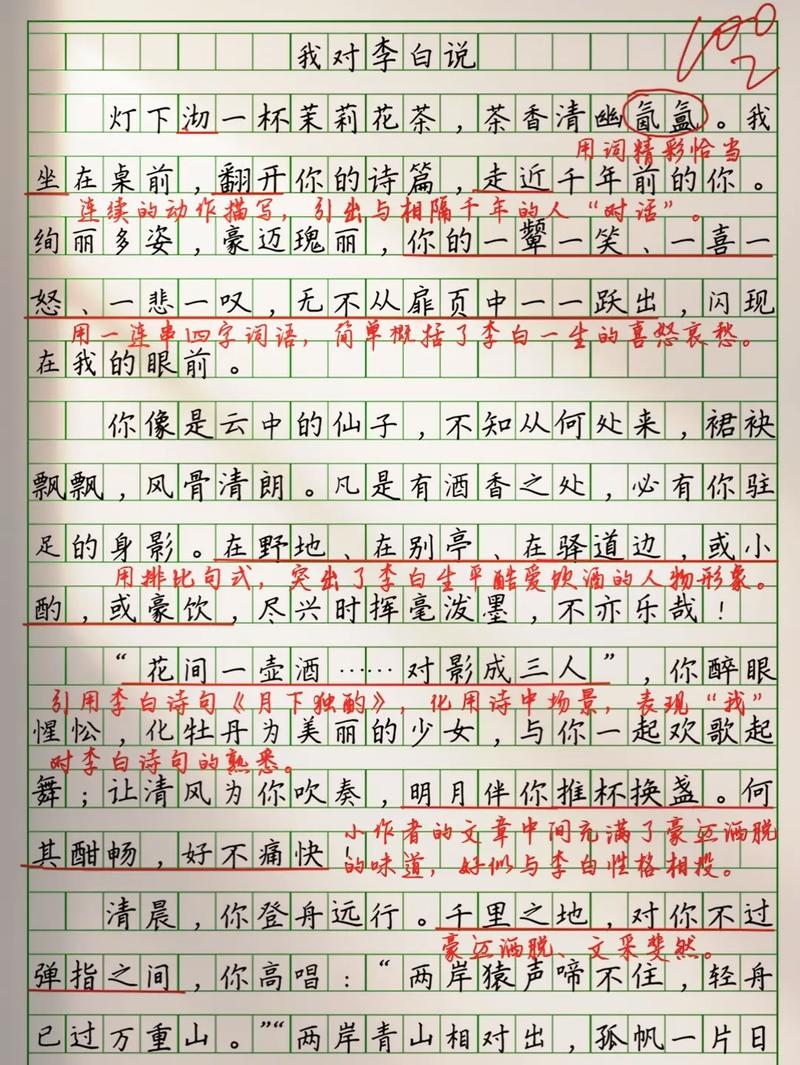 我对李白说
100
灯下沏一杯茉莉花茶，茶香清幽氤氲。我
用词精彩恰当
坐在桌前，翻开你的诗篇，走近千年前的你。
连续的动作描写，引出与相隔千年的人“对话”。
绚丽多姿，豪迈瑰丽，你的一颦一笑、一喜一
怒、一悲一叹，无不从扉页中一一跃出，闪现
用一连串四字词语，简单概括了李白一生的喜怒哀愁。
在我的眼前。
你像是云中的仙子，不知从何处来，裙袂
飘飘，风骨清朗。凡是有酒香之处，必有你驻
足的身影。在野地、在别亭、在驿道边，或小
用排比句式，突出了李白生平酷爱饮酒的人物形象。
酌，或豪饮，尽兴时挥毫泼墨，不亦乐哉！
“花间一壶酒……对影成三人”，你醉眼
引用李白诗句《月下独酌》，化用诗中场景，表现“我”
惺忪，化牡丹为美丽的少女，与你一起欢歌起
对李白诗句的熟悉。
舞；让清风为你吹奏，明月伴你推杯换盏。何
其酣畅，好不痛快！
小作者的文章中间充满了豪迈洒脱
的味道，好似与李白性格相投。
清晨，你登舟远行。千里之地，对你不过
豪迈洒脱、文采斐然。
弹指之间，你高唱：“两岸猿声啼不住，轻舟
已过万重山。”“两岸青山相对出，孤帆一片日